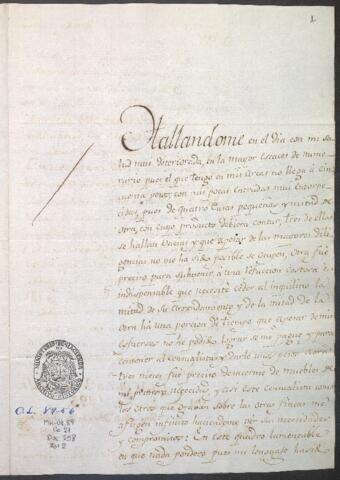 1
Hallandome en el dia con mi sa-
lud mui deteriorada, en la mayor escaces de nume-
rario pues el que tengo en mis Arcas no llega á cin-
cuenta pesos, con mis pocas entradas mui entorpe-
cidas, pues de quatro Casas pequeñas y mitad de
otra, con cuyo producto debiera contar, tres de ellas
se hallan vacias y que apesar de las mayores dili-
gencias no me ha sido posible se ocupen, otra fue
preciso para subvenir á una refaccion costosa é
indispensable que necesitó ceder al inquilino la
mitad de su arrendamiento y de la mitad de la
otra há una porcion de tiempo que apesar de mis
esfuerzos no he podido lograr se me pague y para
contener al censualista y darle unos pesos
fue preciso deshacerme de muebles de
mi primera necesidad y con este censualista como
los otros que gravan sobre las otras fincas me
afligen infinito
y compromisos: En este quadro lamentable
en que nada pondero pues mi lenguaje ha sido
O.L. 87-66
MH-OL 87
Co 21
Doc 258
Fol 2